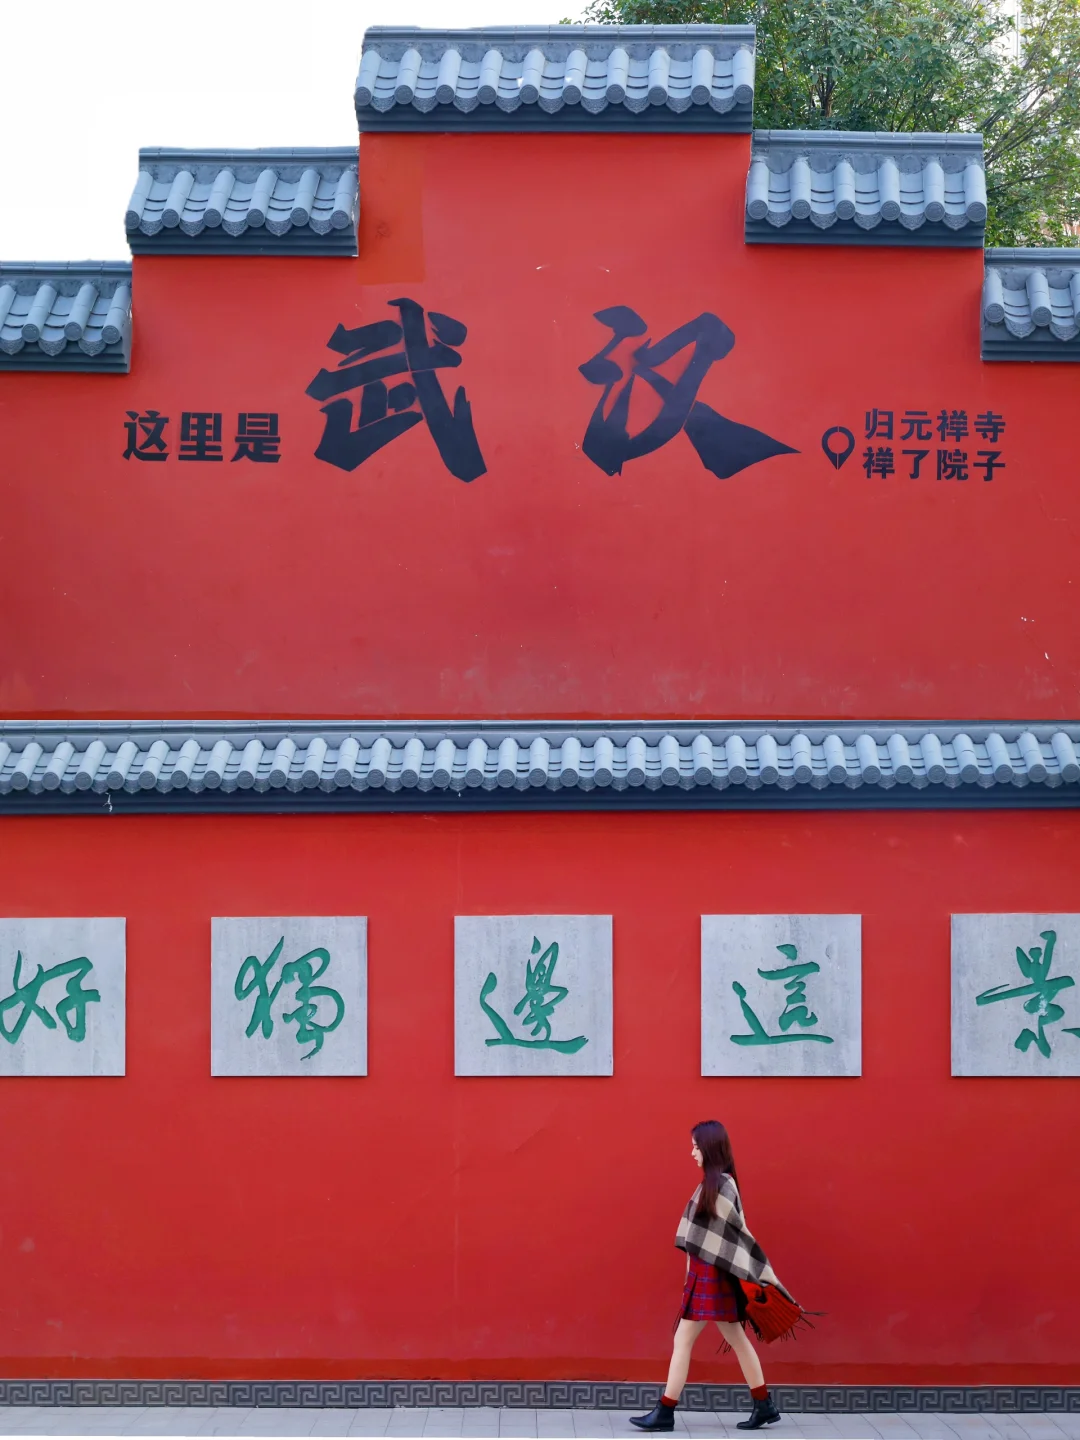 这里是
武汉
归元禅寺
禅了院子
景這邊獨好